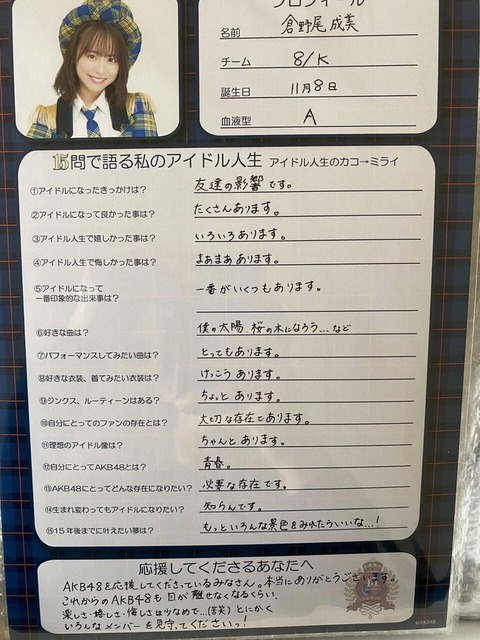 プロフィール
名前 倉野尾 成美
チーム 8/K
誕生日 11月8日
血液型 A
15問で語る私のアイドル人生 アイドル人生のカコ→ミライ
①アイドルになったきっかけは? 友達の影響です。
②アイドルになって良かった事は? たくさんあります。
③アイドル人生で嬉しかった事は? いろいろあります。
④アイドル人生で悔しかった事は? まあまああります。
⑤アイドルになって
一番印象的な出来事は? 一番がいくつもあります。
⑥好きな曲は? 僕の太陽、桜の木になろう...など
⑦パフォーマンスしてみたい曲は? とってもあります。
⑧好きな衣装、着てみたい衣装は? けっこうあります。
⑨ジンクス、ルーティーンはある? ちょっとあります。
⑩自分にとってのファンの存在とは? 大切な存在であります。
⑪理想のアイドル像は? ちゃんとあります。
⑫自分にとってAKB48とは? 青春。
⑬AKB48にとってどんな存在になりたい? 必要な存在です。
⑭生まれ変わってもアイドルになりたい? 知らんです。
⑮15年後までに叶えたい夢は? もっといろんな景色をみれたらいいな...!
応援してくださるあなたへ
AKB48を応援してくださっているみなさん。本当にありがとうございます。
これからのAKB48も目が離せなくなるくらい、
楽しさ・嬉しさ・悔しさは少なめで...(苦笑) とにかく
いろんなメンバーを見守ってくださいっ!
©AKB48